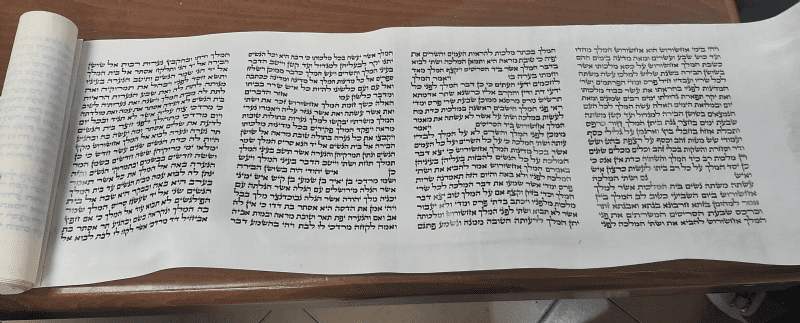 ויהי בימי אחשורוש הוא אחשורוש המלך מהדו
ועד כוש שבע ועשרים ומאה מדינה בימים ההם
כשבת המלך אחשורוש על כסא מלכותו אשר
בשושן הבירה בשנת שלוש למלכו עשה משתה
לכל שריו ועבדיו חיל פרס ומדי הפרתמים ושרי
המדינות לפניו בהראתו את עשר כבוד מלכותו
ואת יקר תפארת גדולתו ימים רבים שמונים ומאת
יום ובמלואת הימים האלה עשה המלך לכל העם
הנמצאים בשושן הבירה למגדול ועד קטן משתה
שבעת ימים בחצר גנת ביתן המלך חור כרפס
ותכלת אחוז בחבלי בוץ וארגמן על גלילי כסף
ועמודי שש מטות זהב וכסף על רצפת בהט ושש
ודר וסחרת והשקות בכלי זהב וכלים מכלים שונים
ויין מלכות רב כיד המלך והשתיה כדת אין אנס כי
כן יסד המלך על כל רב ביתו לעשות כרצון איש
ואיש גם ושתי המלכה
עשתה משתה נשים בית המלכות אשר למלך
אחשורוש ביום השביעי כטוב לב המלך ביין
אמר למהומן בזתא חרבונא בגתא ואבגתא זתר
וכרכס שבעת הסריסים המשרתים את פני
המלך אחשורוש להביא את ושתי המלכה לפני
המלך בכתר מלכות להראות העמים והשרים את
יפיה כי טובת מראה היא ותמאן המלכה ושתי לבוא
בדבר המלך אשר ביד הסריסים ויקצף המלך מאד
וחמתו בערה בו ויאמר המלך
לחכמים ידעי העתים כי כן דבר המלך לפני כל
ידעי דת ודין והקרב אליו כרשנא שתר אדמתא
תרשיש מרס מרסנא ממוכן שבעת שרי פרס ומדי
ראי פני המלך הישבים ראשנה במלכות כדת מה
לעשות במלכה ושתי על אשר לא עשתה את מאמר
המלך אחשורוש ביד הסריסים ויאמר
מומכן לפני המלך והשרים לא על המלך לבדו
עותה ושתי המלכה כי על כל השרים ועל כל העמים
אשר בכל מדינות המלך אחשורוש כי יצא דבר
המלכה על כל הנשים להבזות בעליהן בעיניהן
באמרם המלך אחשורוש אמר להביא את ושתי
המלכה לפניו ולא באה והיום הזה תאמרנה שרות
פרס ומדי אשר שמעו את דבר המלכה לכל שרי
המלך וכדי בזיון וקצף אם על המלך טוב יצא דבר
מלכות מלפניו ויכתב בדתי פרס ומדי ולא יעבור
אשר לא תבוא ושתי לפני המלך אחשורוש ומלכותה
יתן המלך לרעותה הטובה ממנה ונשמע פתגם
המלך אשר יעשה בכל מלכותו כי רבה היא וכל הנשים
יתנו יקר לבעליהן למגדול ועד קטן וייטב הדבר
בעיני המלך והשרים ויעש המלך כדבר ממוכן וישלח
ספרים אל כל מדינות המלך אל מדינה ומדינה ככתבה
ואל עם ועם כלשונו להיות כל איש שרר בביתו
ומדבר כלשון עמו אחר הדברים
האלה כשך חמת המלך אחשורוש זכר את ושתי
ואת אשר עשתה ואת אשר נגזר עליה ויאמרו נערי
המלך משרתיו יבקשו למלך נערות בתולות טובות
מראה ויפקד המלך פקידים בכל מדינות מלכותו
ויקבצו את כל נערה בתולה טובת מראה אל שושן
הבירה אל בית הנשים אל יד הגא סריס המלך שמר
הנשים ונתון תמרוקיהן והנערה אשר תיטב בעיני המלך
תמלך תחת ושתי וייטב הדבר בעיני המלך ויעש
כן איש יהודי היה בשושן הבירה
ושמו מרדכי בן יאיר בן שמעי בן קיש איש ימיני
אשר הגלה מירושלים עם הגלה אשר הגלתה עם
יכניה מלך יהודה אשר הגלה נבוכדנצר מלך בבל
ויהי אמן את הדסה היא אסתר בת דדו כי אין לה
אב ואם והנערה יפת תאר וטובת מראה ובמות אביה
ואמה לקחה מרדכי לו לבת ויהי בהשמע דבר
המלך ודתו ובהקבץ נערות רבות אל שושן
הבירה אל יד הגי ותלקח אסתר אל בית המלך
אל יד הגי שמר הנשים ותיטב הנערה בעיניו
ותשא חסד לפניו ויבהל את תמרוקיה ואת
מנותה לתת לה ואת שבע הנערות הראיות
לתת לה מבית המלך וישנה ואת נערותיה לטוב
בית הנשים לא הגידה אסתר את עמה ואת מולדתה
כי מרדכי צוה עליה אשר לא תגיד ובכל יום
ויום מרדכי מתהלך לפני חצר בית הנשים
לדעת את שלום אסתר ומה יעשה בה ובהגיע
תר נערה ונערה לבוא אל המלך אחשורוש מקץ
היות לה כדת הנשים שנים עשר חדש כי כן
ימלאו ימי מרוקיהן ששה חדשים בשמן המר
וששה חדשים בבשמים ובתמרוקי הנשים ובזה
הנערה באה אל המלך את כל אשר תאמר
ינתן לה לבוא עמה מבית הנשים עד בית המלך
בערב היא באה ובבקר היא שבה אל בית
הנשים שני אל יד שעשגז סריס המלך שמר
הפילגשים לא תבוא עוד אל המלך כי אם חפץ
בה המלך ונקראה בשם ובהגיע תר אסתר בת
אביחיל דד מרדכי אשר לקח לו לבת לבוא אל